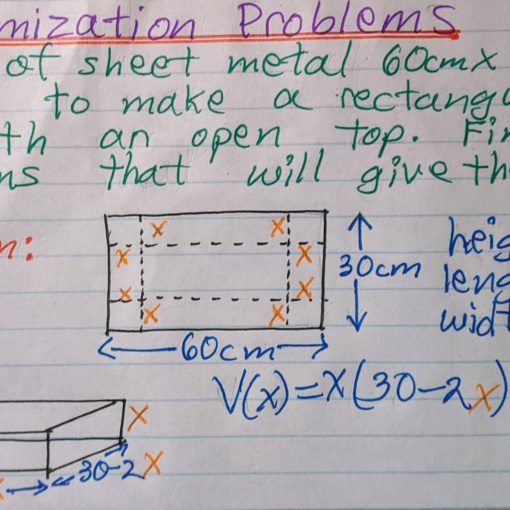 mization Problems
of sheet metal 60cm x
to make a rectang
th an open top. Fin
ns that will give th
n:
x x
x x
x x
x x
30cm
heig
leng
widt
60cm
V(x)=x(30-2x)
x
30-2x